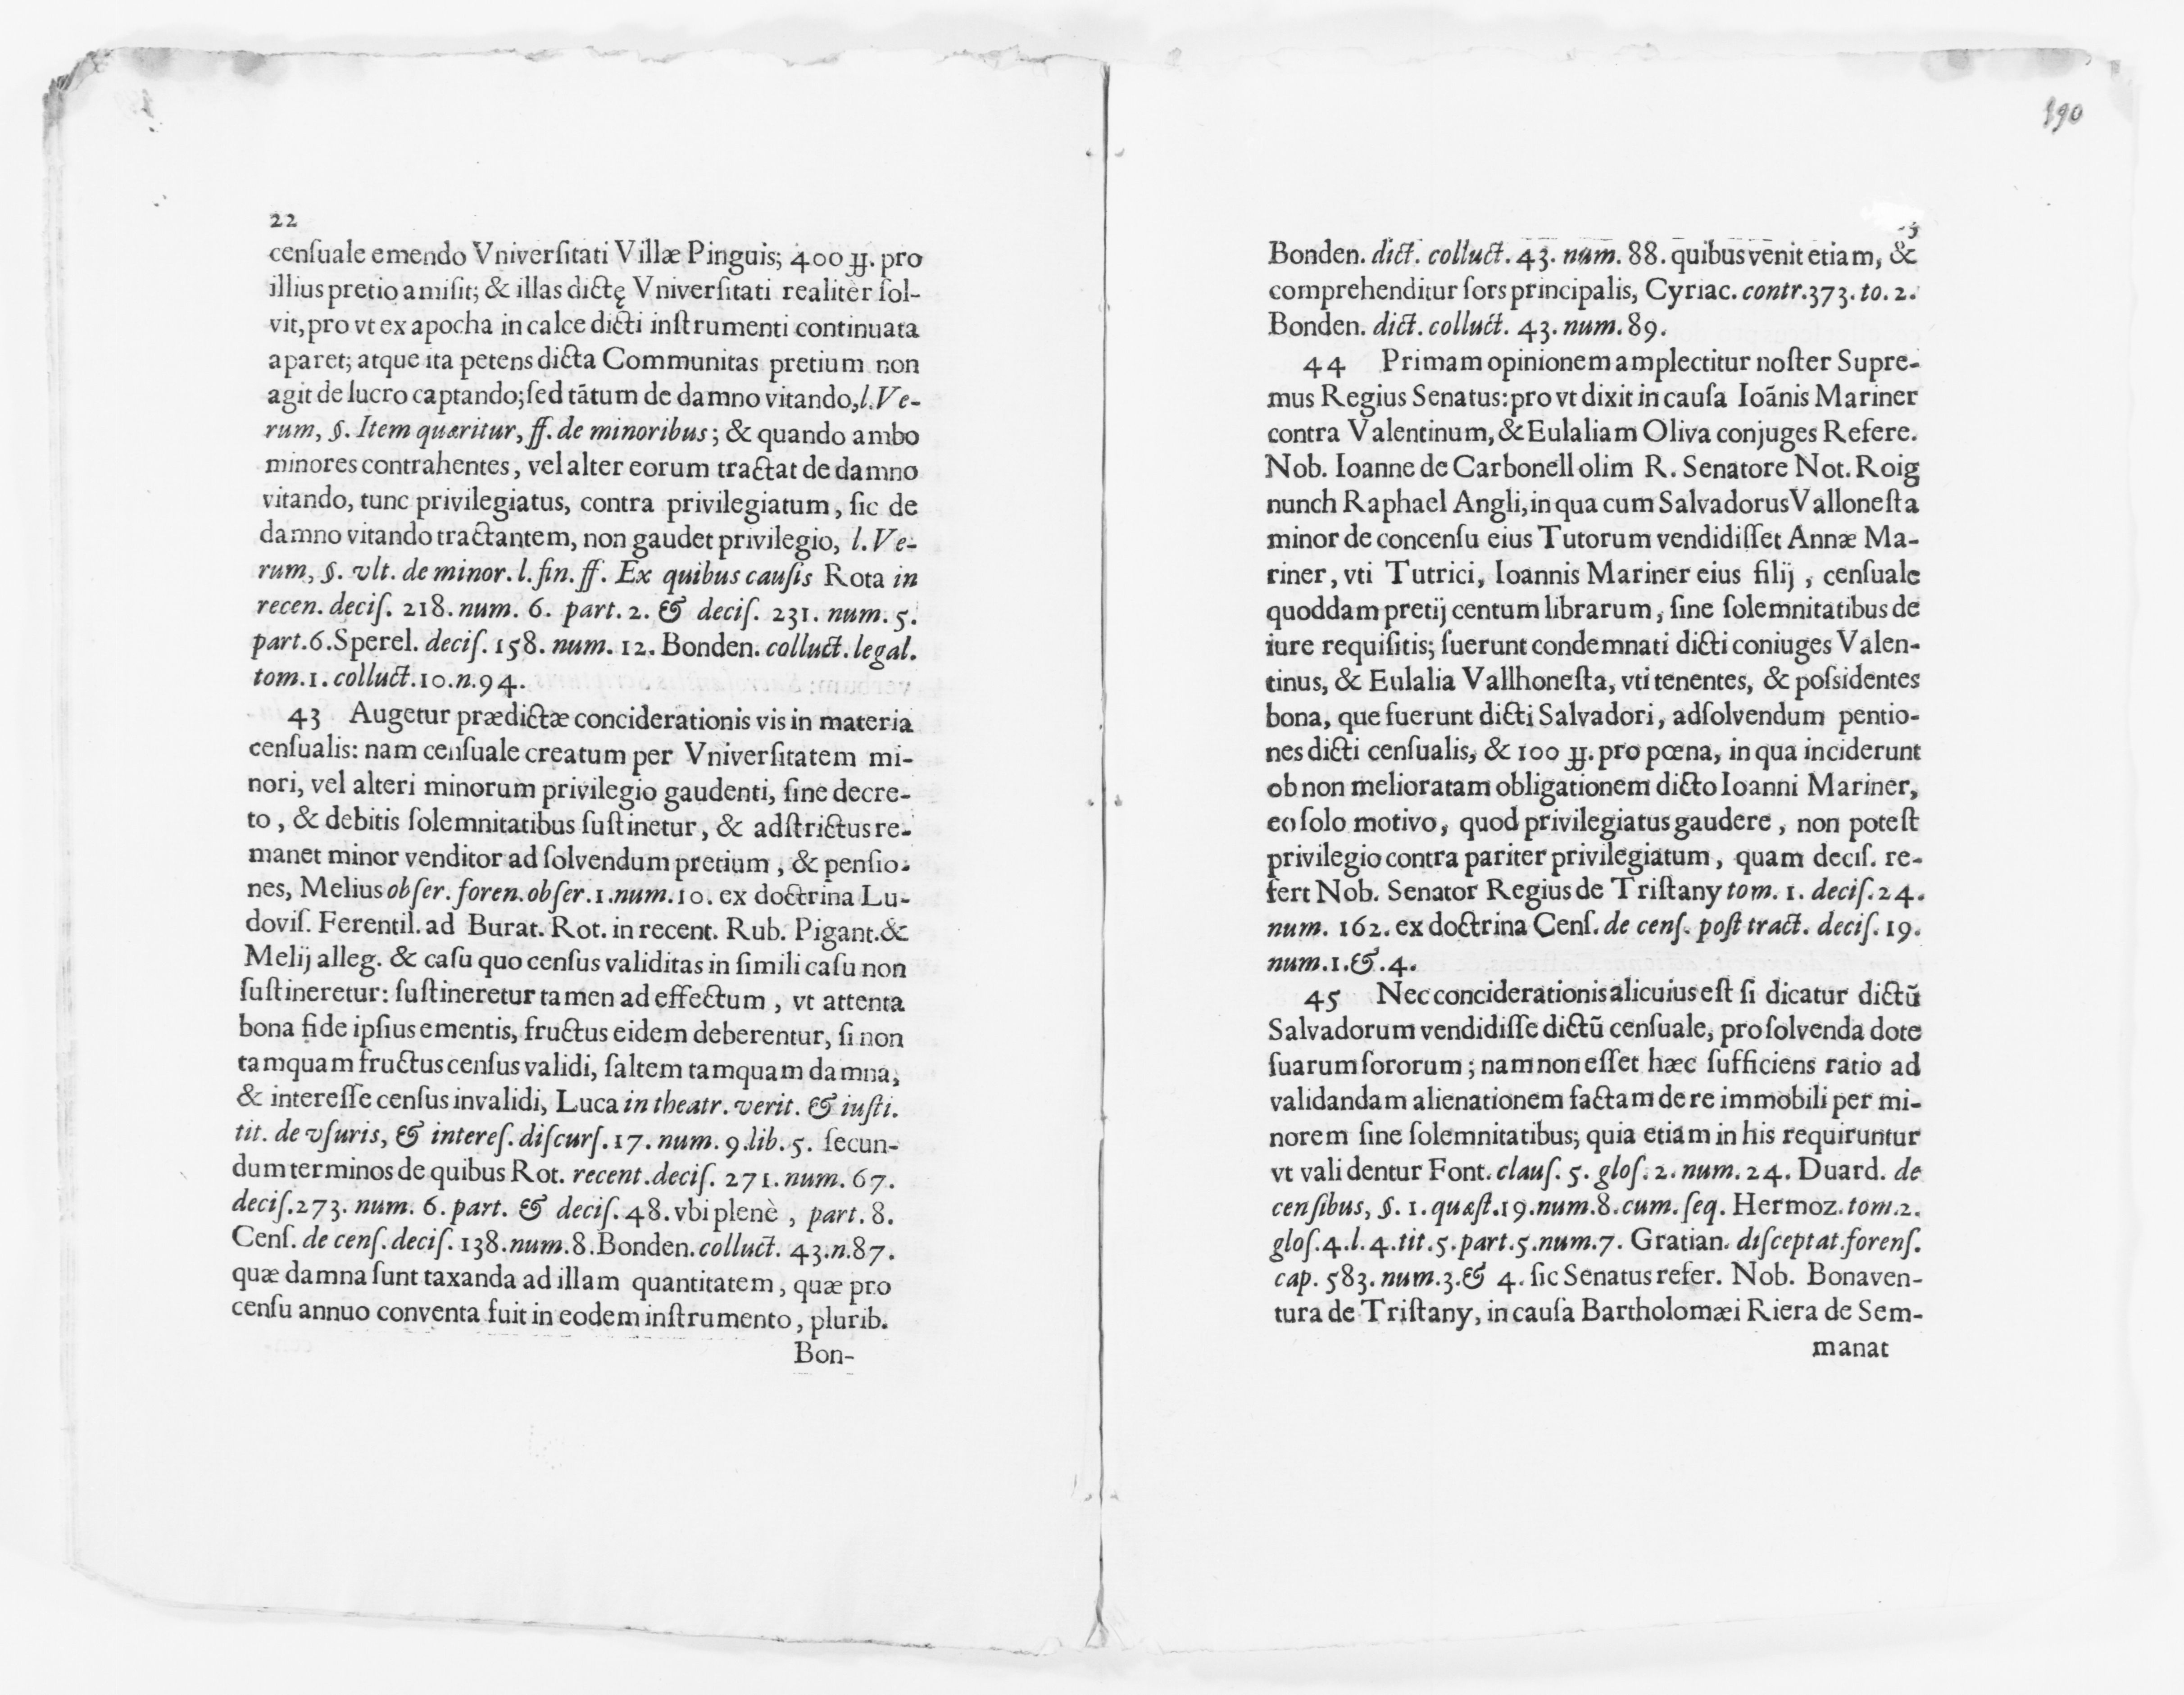 22
cenſuale emendo Vniverſitati Villæ Pinguis; 400 ℔. pro
illius pretio amiſit; & illas dictę Vniverſitati realitèr ſol-
vit, pro vt ex apocha in calce dicti inſtrumenti continuata
aparet; atque ita petens dicta Communitas pretium non
agit de lucro captando; ſed tãtum de damno vitando, l. Ve-
rum, §. Item quæritur, ff. de minoribus; & quando ambo
minores contrahentes, vel alter eorum tractat de damno
vitando, tunc privilegiatus, contra privilegiatum, ſic de
damno vitando tractantem, non gaudet privilegio, l. Ve-
rum, §. vlt. de minor. l. fin. ff. Ex quibus cauſis Rota in
recen. deciſ. 218. num. 6. part. 2. & deciſ. 231. num. 5.
part. 6. Sperel. deciſ. 158. num. 12. Bonden. colluct. legal.
tom. 1. colluct. 10. n. 94.
43 Augetur prædictæ conciderationis vis in materia
cenſualis: nam cenſuale creatum per Vniverſitatem mi-
nori, vel alteri minorum privilegio gaudenti, ſine decre-
to, & debitis ſolemnitatibus ſuſtinetur, & adſtrictus re-
manet minor venditor ad ſolvendum pretium, & penſio-
nes, Melius obſer. foren. obſer. 1. num. 10. ex doctrina Lu-
doviſ. Ferentil. ad Burat. Rot. in recent. Rub. Pigant. &
Melij alleg. & caſu quo cenſus validitas in ſimili caſu non
ſuſtineretur: ſuſtineretur tamen ad effectum, vt attenta
bona fide ipſius ementis, fructus eidem deberentur, ſi non
tamquam fructus cenſus validi, ſaltem tamquam damna,
& intereſſe cenſus invalidi, Luca in theatr. verit. & iuſti.
tit. de vſuris, & intereſ. diſcurſ. 17. num. 9. lib. 5. ſecun-
dum terminos de quibus Rot. recent. deciſ. 271. num. 67.
deciſ. 273. num. 6. part. & deciſ. 48. vbi plenè, part. 8.
Cenſ. de cenſ. deciſ. 138. num. 8. Bonden. colluct. 43. n. 87.
quæ damna ſunt taxanda ad illam quantitatem, quæ pro
cenſu annuo conventa fuit in eodem inſtrumento, plurib.
Bon-
190
Bonden. dict. colluct. 43. num. 88. quibus venit etiam, &
comprehenditur ſors principalis, Cyriac. contr. 373. to. 2.
Bonden. dict. colluct. 43. num. 89.
44 Primam opinionem amplectitur noſter Supre-
mus Regius Senatus: pro vt dixit in cauſa Ioãnis Mariner
contra Valentinum, & Eulaliam Oliva conjuges Refere.
Nob. Ioanne de Carbonell olim R. Senatore Not. Roig
nunch Raphael Angli, in qua cum Salvadorus Valloneſta
minor de concenſu eius Tutorum vendidiſſet Annæ Ma-
riner, vti Tutrici, Ioannis Mariner eius filij, cenſuale
quoddam pretij centum librarum, ſine ſolemnitatibus de
iure requiſitis; fuerunt condemnati dicti coniuges Valen-
tinus, & Eulalia Vallhoneſta, vti tenentes, & poſsidentes
bona, que fuerunt dicti Salvadori, adſolvendum pentio-
nes dicti cenſualis, & 100 ℔. pro pœna, in qua inciderunt
ob non melioratam obligationem dicto Ioanni Mariner,
eo ſolo motivo, quod privilegiatus gaudere, non poteſt
privilegio contra pariter privilegiatum, quam deciſ. re-
fert Nob. Senator Regius de Triſtany tom. 1. deciſ. 24.
num. 162. ex doctrina Cenſ. de cenſ. poſt tract. deciſ. 19.
num. 1. &. 4.
45 Nec conciderationis alicuius eſt ſi dicatur dictũ
Salvadorum vendidiſſe dictũ cenſuale, pro ſolvenda dote
ſuarum ſororum; nam non eſſet hæc ſufficiens ratio ad
validandam alienationem factam de re immobili per mi-
norem ſine ſolemnitatibus; quia etiam in his requiruntur
vt vali dentur Font. clauſ. 5. gloſ. 2. num. 24. Duard. de
cenſibus, §. 1. quæſt. 19. num. 8. cum. ſeq. Hermoz. tom. 2.
gloſ. 4. l. 4. tit. 5. part. 5. num. 7. Gratian. diſceptat. forenſ.
cap. 583. num. 3. & 4. ſic Senatus refer. Nob. Bonaven-
tura de Triſtany, in cauſa Bartholomæi Riera de Sem-
manat